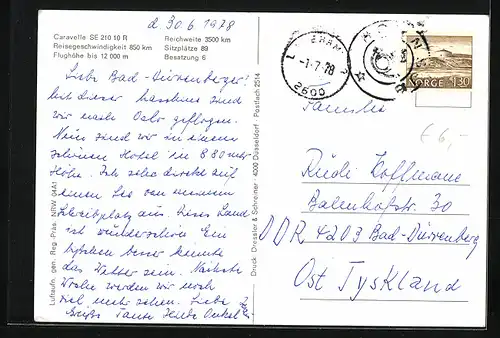 d 30.6.1978
Caravelle SE 210 10 R
Reisegeschwindigkeit 850 km
Flughöhe bis 12 000 m
Reichweite 3500 km
Sitzplätze 89
Besatzung 6
Liebe Bad-Dürrenberger!
Mit dieser Maschine sind
wir nach Oslo geflogen.
Nun sind wir in einem
schönen Hotel in 880 mtr
Höhe. Ich sehe direkt auf
einen See von meinem
Schreibplatz aus. Dieses Land
ist wunderschön. Ein
bißchen besser könnte
das Wetter sein. Nächste
Woche werden wir noch
viel mehr sehen. Liebe
Grüße Tante Onkel
Luftaufn. gen. Reg.-Präs. NRW 04A1
Druck: Dressler & Schreiner · 4000 Düsseldorf · Postfach 2514
-1-7.78
2600
NORGE 1,30
Familie
Rudi Hoffmann
Bahnhofstr. 30
DDR 4203 Bad-Dürrenberg
Ost Tyskland
€ 6,-